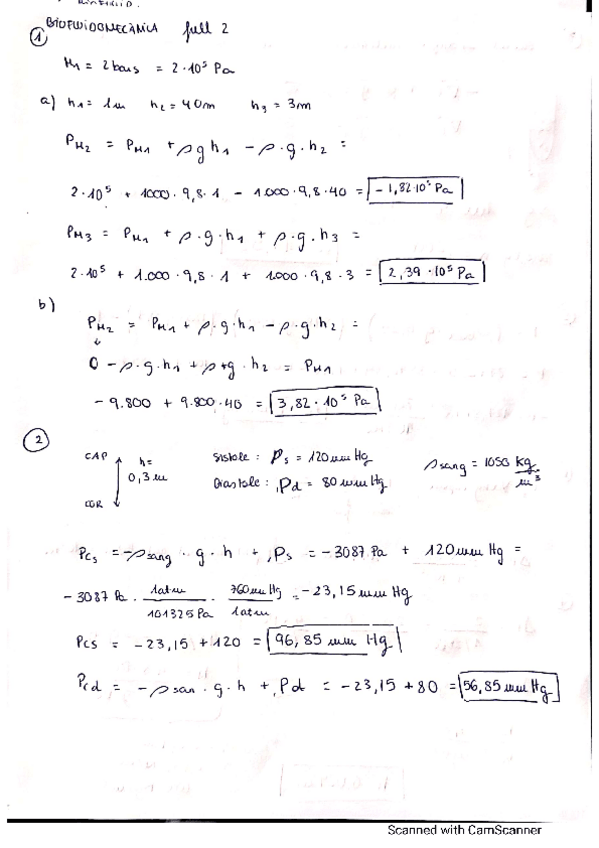 BIOFLUIDOMECÀNICA full 2
1
M₁ = 2 bars = 2·10⁵ Pa
a) h₁ = 1m h₂ = 40m h₃ = 3m
P_M₂ = P_M₁ + ρgh₁ - ρ·g·h₂ =
2·10⁵ + 1000·9,8·1 - 1.000·9,8·40 = -1,82·10⁵ Pa
P_M₃ = P_M₁ + ρ·g·h₁ + ρ·g·h₃ =
2·10⁵ + 1.000·9,8·1 + 1.000·9,8·3 = 2,39·10⁵ Pa
b)
P_M₂ = P_M₁ + ρ·g·h₁ - ρ·g·h₂ =
0 - ρ·g·h₁ + ρ+g·h₂ = P_M₁
- 9.800 + 9.800·40 = 3,82·10⁵ Pa
2
CAP h= 0,3m COR
Sístole: Ps = 120 mm Hg
Diàstole: Pd = 80 mm Hg
ρsang = 1050 kg/m³
Pcs = -ρsang·g·h + Ps = -3087 Pa + 120 mm Hg =
-3087 Pa · 1atm/101325 Pa · 760 mm Hg/1atm = -23,15 mm Hg
Pcs = -23,15 + 120 = 96,85 mm Hg
Pcd = -ρsan·g·h + Pd = -23,15 + 80 = 56,85 mm Hg
Scanned with CamScanner